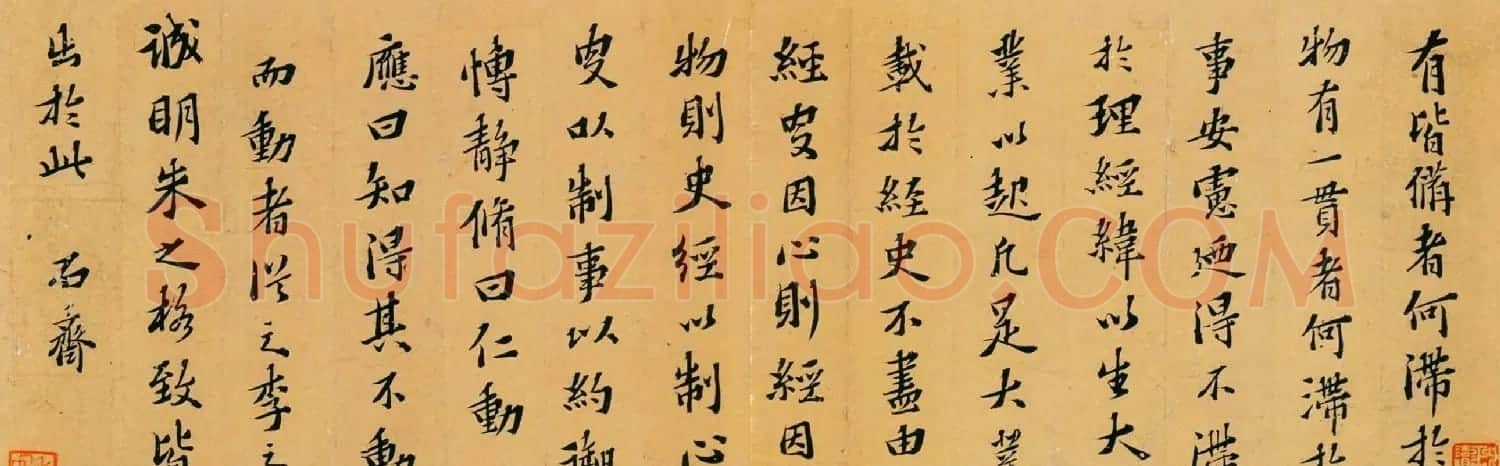 有皆備者何滯於
物有一貫者何滯於
事安慮廼得不滯
於理經緯以生大
業以起凡是大業
載於経史不盡由
經叓因心則經因
物則史經以制心
叓以制事以約御
慱静脩曰仁動
應曰知淂其不動
而動者従之李之
誠明朱之格致皆
出於此
Shufaziliao.COM